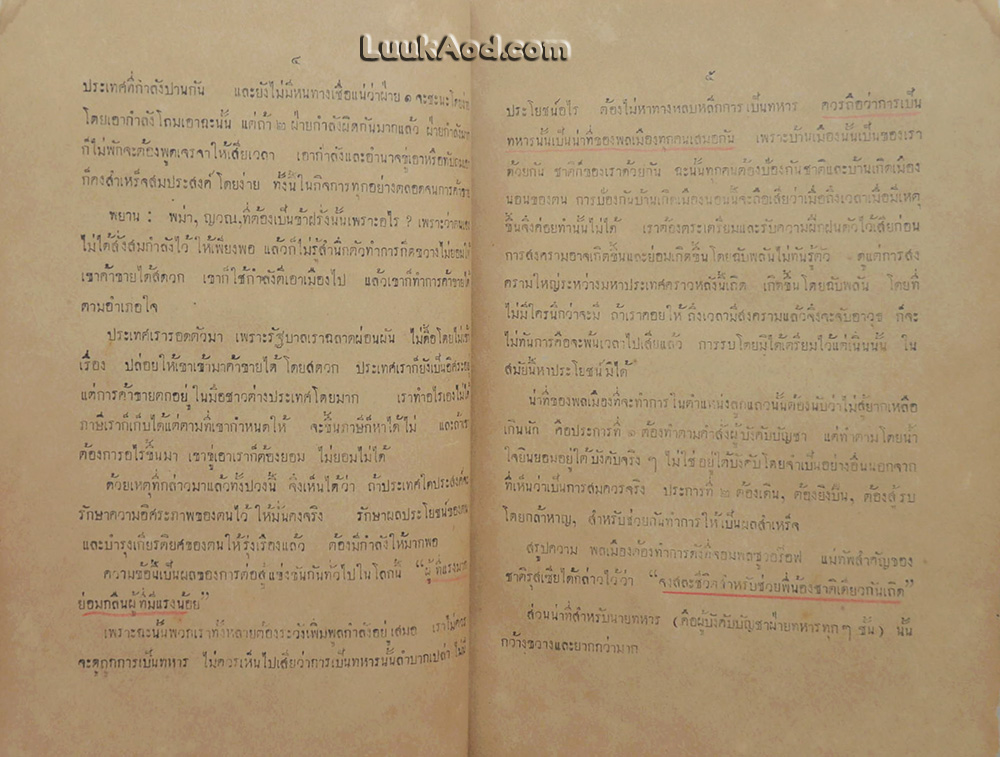 LuukAod.com
๔
ประเทศที่กำลังปานกัน และยังไม่มีหนทางเชื่อแน่ว่าฝ่าย ๑ จะชะนะโดยง่าย
โดยเอากำลังโถมเอาฉะนั้น แต่ถ้า ๒ ฝ่ายกำลังผิดกันมากแล้ว ฝ่ายกำลังมาก
ก็ไม่พักจะต้องพูดเจรจาให้เสียเวลา เอากำลังและอำนาจขู่เอาหรือทับถม
ก็คงสำเร็จสมประสงค์โดยง่าย ทั้งนี้ในกิจการทุกอย่างตลอดจนการค้าขาย
พยาน : พม่า, ญวณ,ที่ต้องเป็นข้าฝรั่งนั้นเพราะอะไร ? เพราะว่าตน
ไม่ได้สั่งสมกำลังไว้ให้เพียงพอ แล้วก็ไม่รู้สำนึกตัวทำการกีดขวางไม่ยอมให้
เขาค้าขายได้สดวก เขาก็ใช้กำลังตีเอาเมืองไป แล้วเขาก็ทำการค้าขายได้
ตามอำเภอใจ
ประเทศเรารอดตัวมา เพราะรัฐบาลเราฉลาดผ่อนผัน ไม่ดื้อโดยไม่
เรื่อง ปล่อยให้เขาเข้ามาค้าขายได้โดยสดวก ประเทศเราก็ยังเป็นอิศระ
แต่การค้าขายตกอยู่ในมือชาวต่างประเทศโดยมาก เราทำอะไรเองไม่ได้
ภาษีเราก็เก็บได้แต่ตามที่เขากำหนดให้ จะขึ้นภาษีก็หาได้ไม่ และถ้า
ต้องการอะไรขึ้นมา เขาขู่เอาเราก็ต้องยอม ไม่ยอมไม่ได้
ด้วยเหตุที่กล่าวมาแล้วทั้งปวงนี้ จึงเห็นได้ว่า ถ้าประเทศใดประสงค์จะ
รักษาความอิศระภาพของตนไว้ให้มั่นคงจริง รักษาผลประโยชน์ของตน
และบำรุงเกียรติยศของตนให้รุ่งเรืองแล้ว ต้องมีกำลังให้มากพอ
ความข้อนี้เป็นผลของการต่อสู้แข่งขันกันทั่วไปในโลกนี้ “ผู้ที่แรงมาก
ย่อมกลืนผู้ที่มีแรงน้อย”
เพราะฉะนั้นพวกเราทั้งหลายต้องระวังเพิ่มพูลกำลังอยู่เสมอ เราไม่ควร
จะดูถูกการเป็นทหาร ไม่ควรเห็นไปเสียว่าการเป็นทหารนั้นลำบากเปล่า ไม่มี
๕
ประโยชน์อไร ต้องไม่หาทางหลบหลีกการเป็นทหาร ควรถือว่าการเป็น
ทหารนั้นเป็นน่าที่ของพลเมืองทุกคนเสมอกัน เพราะบ้านเมืองนั้นเป็นของเรา
ด้วยกัน ชาติก็ของเราด้วยกัน ฉะนั้นทุกคนต้องป้องกันชาติและบ้านเกิดเมือง
นอนของตน การป้องกันบ้านเกิดเมืองนอนนั้นจะถือเสียว่าเมื่อถึงเวลาเมื่อมีเหตุ
ขึ้นจึงค่อยทำนั้นไม่ได้ เราต้องตระเตรียมและรับความฝึกฝนตัวไว้เสียก่อน
การสงครามอาจเกิดขึ้นและย่อมเกิดขึ้นโดยฉับพลันไม่ทันรู้ตัว ดูแต่การสง
ครามใหญ่ระหว่างมหาประเทศคราวหลังนี้เถิด เกิดขึ้นโดยฉับพลัน โดยที่
ไม่มีใครนึกว่าจะมี ถ้าเราคอยให้ถึงเวลามีสงครามแล้วจึงจะจับอาวุธ ก็จะ
ไม่ทันการคือจะพ้นเวลาไปเสียแล้ว การรบโดยมิได้เตรียมไว้แต่เนิ่นนั้น ใน
สมัยนี้หาประโยชน์มิได้
น่าที่ของพลเมืองที่จะทำการในตำแหน่งลูกแถวนั้นต้องนับว่าไม่สู้ยากเหลือ
เกินนัก คือประการที่ ๑ ต้องทำตามคำสั่งผู้บังคับบัญชา แต่ทำตามโดยน้ำ
ใจยินยอมอยู่ใต้บังคับจริง ๆ ไม่ใช่อยู่ใต้บังคับโดยจำเป็นอย่างอื่นนอกจาก
ที่เห็นว่าเป็นการสมควรจริง ประการที่ ๒ ต้องเดิน, ต้องยิงปืน, ต้องสู้รบ
โดยกล้าหาญ, สำหรับช่วยกันทำการให้เป็นผลสำเร็จ
สรุปความ พลเมืองต้องทำการดังที่จอมพลซูวอร๊อฟ แม่ทัพสำคัญของ
ชาติรุสเซียได้กล่าวไว้ว่า “จงสละชีวิตสำหรับช่วยพี่น้องชาติเดียวกันเถิด”
ส่วนน่าที่สำหรับนายทหาร (คือผู้บังคับบัญชาฝ่ายทหารทุก ๆ ชั้น) นั้น
กว้างขวางและยากกว่ามาก